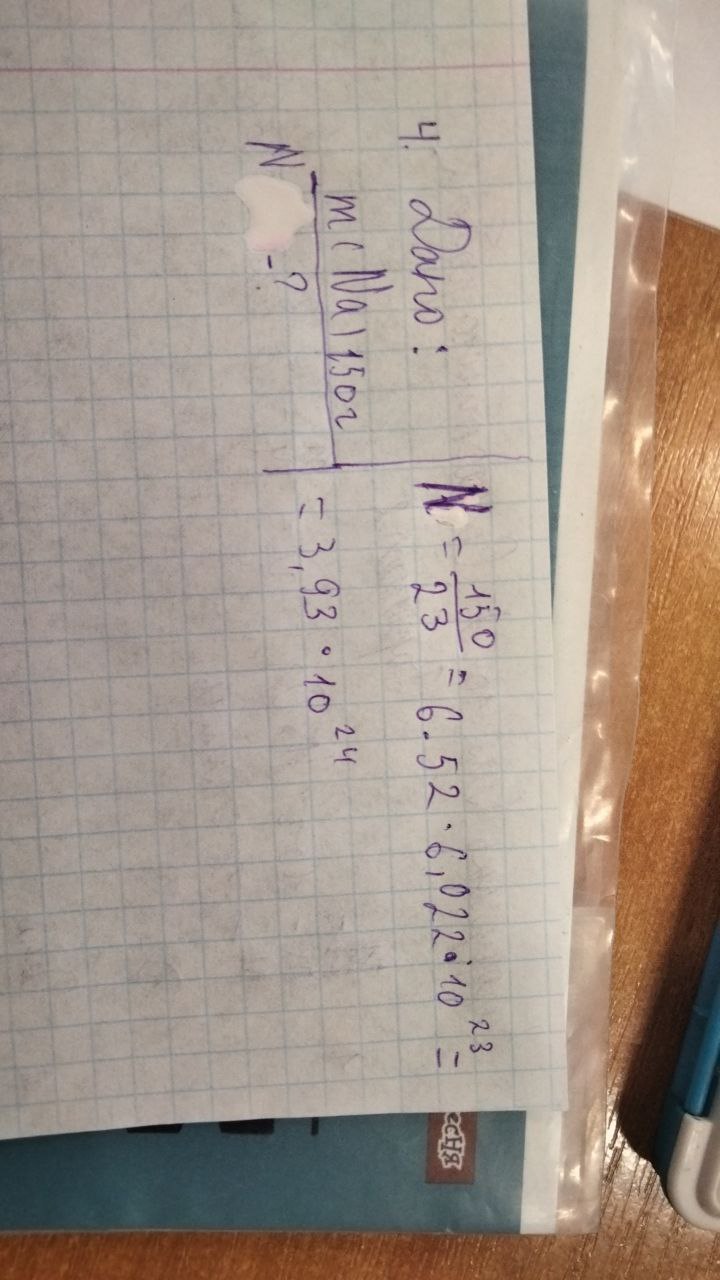 4. Дано:
m(Na)150г
N -?
N = 150/23 = 6.52 · 6,022 · 10²³ =
= 3,93 · 10²⁴
есня